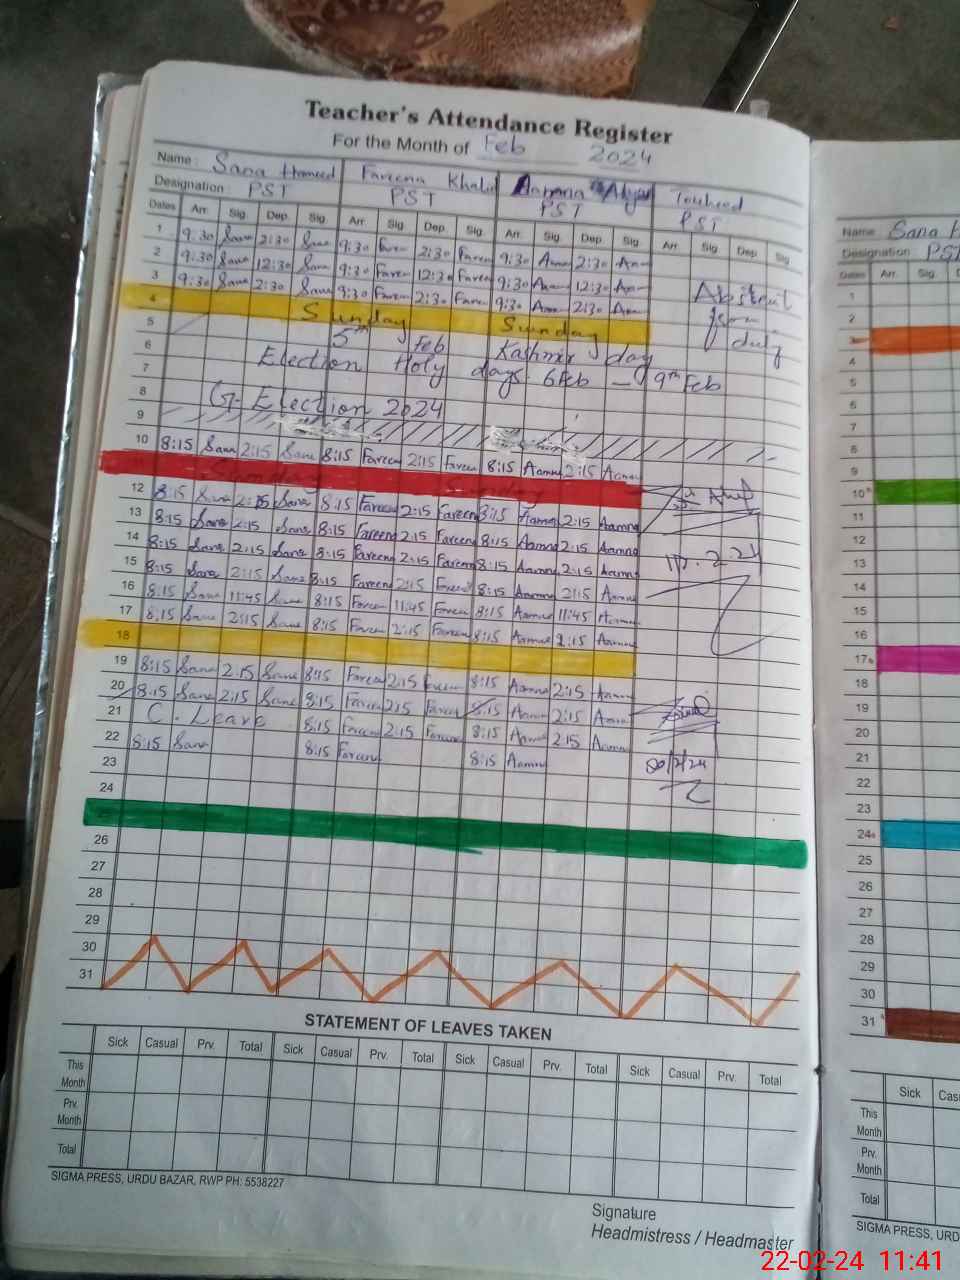 Teacher's Attendance Register
For the Month of Feb 2024
Name: Sana Hameed Fareena Khalid Aamna Touheed
Designation: PST PST PST PST
Dates Arr. Sig. Dep. Sig. Arr. Sig. Dep. Sig. Arr. Sig. Dep. Sig. Arr. Sig. Dep. Sig.
1 9:30 Sana 2:30 Sana 9:30 Faren 2:30 Fareen 9:30 Aam 2:30 Aam
2 9:30 Sana 12:30 Sana 9:30 Fareen 12:30 Fareen 9:30 Aam 12:30 Aam
3 9:30 Sana 2:30 Sana 9:30 Fareen 2:30 Faren 9:30 Aam 2:30 Aam
4 Sunday Sunday
5 5th Feb Kashmir day
6 Election Holy days 6 Feb – 9th Feb
7
8 G-Election 2024
9
10 8:15 Sana 2:15 Sana 8:15 Fareen 2:15 Fareen 8:15 Aamna 2:15 Aamna
12 8:15 Sana 2:15 Sana 8:15 Fareen 2:15 Fareen 8:15 Aamna 2:15 Aamna
13 8:15 Sana 2:15 Sana 8:15 Fareen 2:15 Fareen 8:15 Aamna 2:15 Aamna
14 8:15 Sana 2:15 Sana 8:15 Fareen 2:15 Fareen 8:15 Aamna 2:15 Aamna
15 8:15 Sana 2:15 Sana 8:15 Fareen 2:15 Fareen 8:15 Aamna 2:15 Aamna
16 8:15 Sana 11:45 Sana 8:15 Fareen 11:45 Fareen 8:15 Aamna 11:45 Aamna
17 8:15 Sana 2:15 Sana 8:15 Fareen 2:15 Fareen 8:15 Aamna 2:15 Aamna
18
19 8:15 Sana 2:15 Sana 8:15 Fareen 2:15 Fareen 8:15 Aamna 2:15 Aamna
20 8:15 Sana 2:15 Sana 8:15 Fareen 2:15 Fareen 8:15 Aamna 2:15 Aamna
21 C. Leave 8:15 Fareen 2:15 Fareen 8:15 Aamna 2:15 Aamna
22 8:15 Sana 8:15 Fareen 8:15 Aamna
23
24
26
27
28
29
30
31
from
duty
STATEMENT OF LEAVES TAKEN
Sick Casual Prv. Total Sick Casual Prv. Total Sick Casual Prv. Total Sick Casual Prv. Total
This Month
Prv. Month
Total
SIGMA PRESS, URDU BAZAR, RWP PH: 5538227
Signature
Headmistress / Headmaster
Name: Sana
Designation: PST
Dates Arr. Sig
1
2
3
4
5
6
7
8
9
10
11
12
13
14
15
16
17
18
19
20
21
22
23
24
25
26
27
28
29
30
31
Sick
This Month
Prv. Month
Total
SIGMA PRESS, URD
22-02-24 11:41